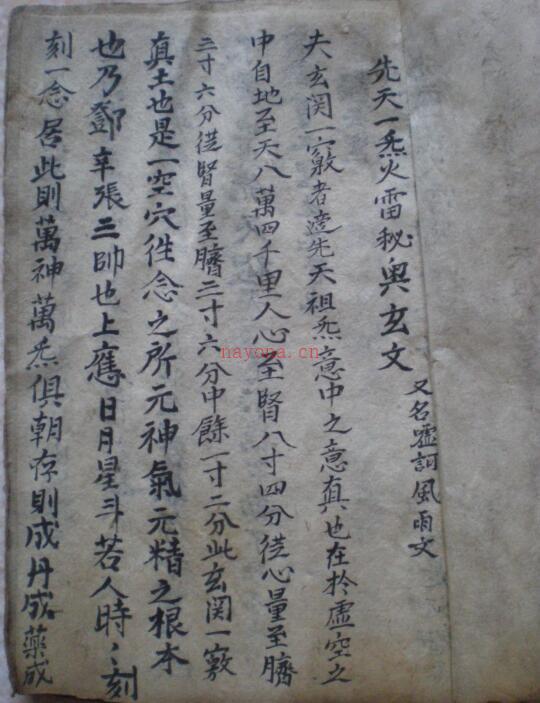 先天一炁火雷秘奧玄文
又名噓訶風雨文
夫玄関一竅者造先天祖炁意中之意真也在扵虛空之
中自地至天八萬四千里人心至腎八寸四分從心量至臍
三寸六分從腎量至臍三寸六分中餘一寸二分此玄関一竅
真土也是一空穴徃念之所元神氣元精之根本
也乃鄧辛張三帥也上應日月星斗若人時〻刻
刻一念居此則萬神萬炁俱朝存則成丹成藥成
nayona.cn